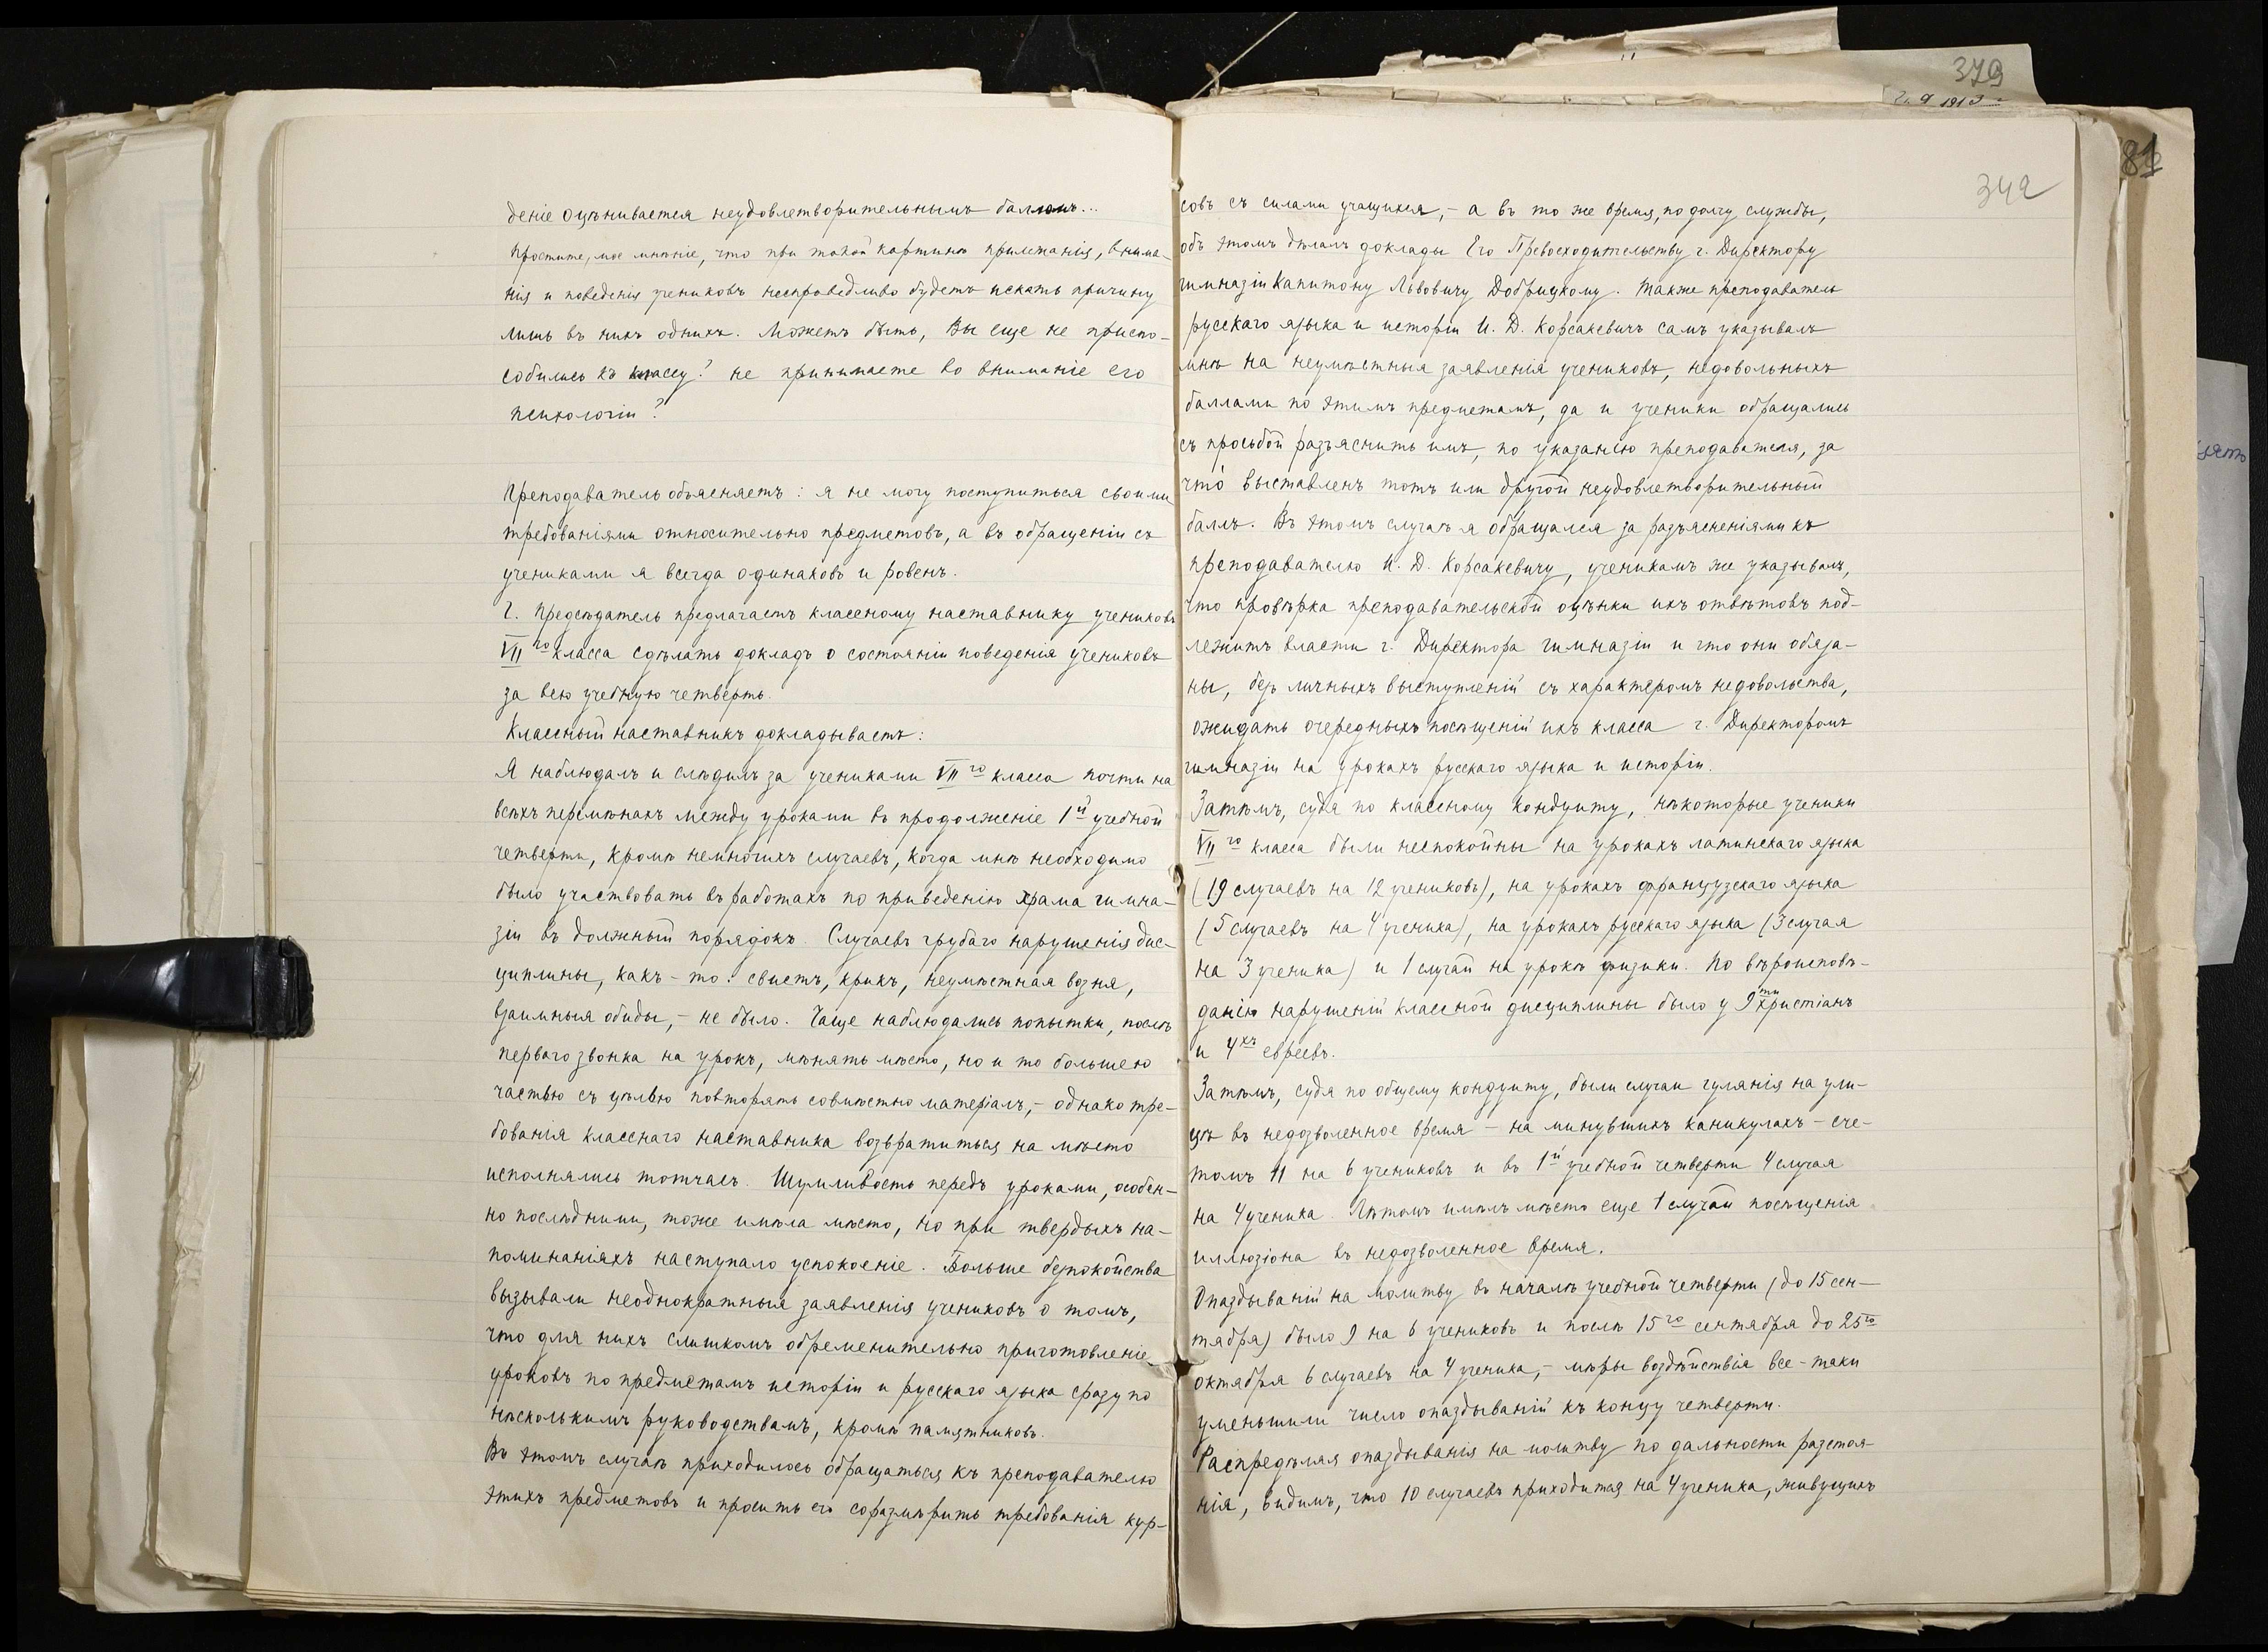 деніе оцѣнивается неудовлетворительнымъ балломъ...
Простите, мое мнѣніе, что при такой картинѣ прилежанія, внима-
нія и поведенія учениковъ несправедливо будетъ искать причину
лишь въ нихъ однихъ. Можетъ быть, Вы еще не приспо-
собились къ классу? не принимаете во вниманіе его
психологіи?
Преподаватель объясняетъ: я не могу поступиться своими
требованіями относительно предметовъ, а въ обращеніи съ
учениками я всегда одинаковъ и ровенъ.
Г. Предсѣдатель предлагаетъ классному наставнику учениковъ
VII го класса сдѣлать докладъ о состояніи поведенія учениковъ
за всю учебную четверть.
Классный наставникъ докладываетъ:
Я наблюдалъ и слѣдилъ за учениками VII го класса почти на
всѣхъ перемѣнахъ между уроками въ продолженіе 1й учебной
четверти, кромѣ немногихъ случаевъ, когда мнѣ необходимо
было участвовать въ работахъ по приведенію храма гимна-
зіи въ должный порядокъ. Случаевъ грубаго нарушенія дис-
циплины, какъ-то: свистъ, крикъ, неумѣстная возня,
взаимныя обиды, - не было. Чаще наблюдались попытки, послѣ
перваго звонка на урокъ, мѣнять мѣсто, но и то большею
частью съ цѣлью повторять совмѣстно матеріалъ, - однако тре-
бованія класснаго наставника возвратиться на мѣсто
исполнялись тотчасъ. Шумливость передъ уроками, особен-
но послѣдними, тоже имѣла мѣсто, но при твердыхъ на-
поминаніяхъ наступало успокоеніе. Больше безпокойства
вызывали неоднократныя заявленія учениковъ о томъ,
что для нихъ слишкомъ обременительно приготовленіе
уроковъ по предметамъ исторіи и русскаго языка сразу по
нѣсколькимъ руководствамъ, кромѣ памятниковъ.
Въ этомъ случаѣ приходилось обращаться къ преподавателю
этихъ предметовъ и просить его соразмѣрить требованія кур-
379
81
342
совъ съ силами учащихся, - а въ то же время, по долгу службы,
объ этомъ дѣлалъ доклады Его Превосходительству г. Директору
гимназіи Капитону Львовичу Добрицкому. Также преподаватель
русскаго языка и исторіи И. Д. Корсакевичъ самъ указывалъ
мнѣ на неумѣстныя заявленія учениковъ, недовольныхъ
баллами по этимъ предметамъ, да и ученики обращались
съ просьбой разъяснить имъ, по указанію преподавателя, за
что́ выставленъ тотъ или другой неудовлетворительный
баллъ. Въ этомъ случаѣ я обращался за разъясненіями къ
преподавателю И. Д. Корсакевичу, ученикамъ же указывалъ,
что провѣрка преподавательской оцѣнки ихъ отвѣтовъ под-
лежитъ власти г. Директора гимназіи и что они обяза-
ны, безъ личныхъ выступленій съ характеромъ недовольства,
ожидать очередныхъ посѣщеній ихъ класса г. Директоромъ
гимназіи на урокахъ русскаго языка и исторіи.
Затѣмъ, судя по классному кондуиту, нѣкоторые ученики
VII го класса были неспокойны на урокахъ латинскаго языка
(19 случаевъ на 12 учениковъ), на урокахъ французскаго языка
(5 случаевъ на 4 ученика), на урокахъ русскаго языка (3 случая
на 3 ученика) и 1 случай на урокѣ физики. По вѣроисповѣ-
данію нарушеній классной дисциплины было у 9ти христіанъ
и 4хъ евреевъ.
Затѣмъ, судя по общему кондуиту, были случаи гулянія на ули-
цѣ въ недозволенное время - на минувшихъ каникулахъ - сче-
томъ 11 на 6 учениковъ и въ 1й учебной четверти 4 случая
на 4 ученика. Лѣтомъ имѣлъ мѣсто еще 1 случай посѣщенія
иллюзіона въ недозволенное время.
Опаздываній на молитву въ началѣ учебной четверти (до 15 сен-
тября) было 9 на 6 учениковъ и послѣ 15го сентября до 25го
октября 6 случаевъ на 4 ученика, - мѣры воздѣйствія все-таки
уменьшили число опаздываній къ концу четверти.
Распредѣляя опаздыванія на молитву по дальности разстоя-
нія, видимъ, что 10 случаевъ приходится на 4 ученика, живущихъ